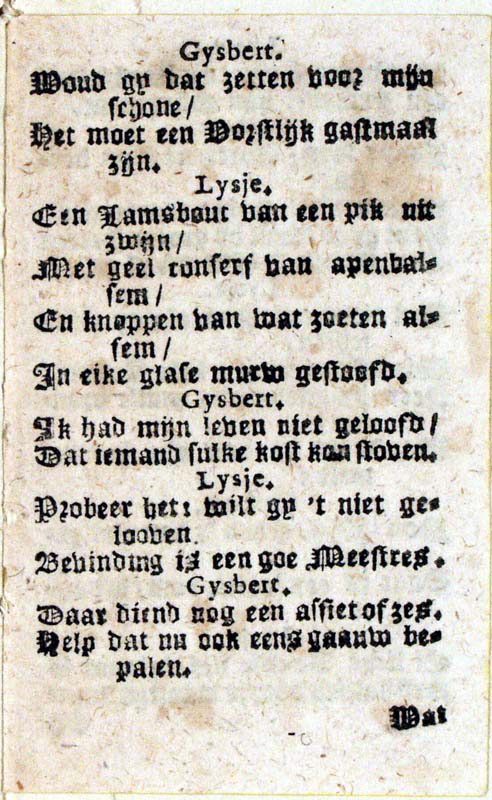 Gysbert.
Woud gy dat zetten voor mijn
schone/
Het moet een Vorstlijk gastmaal
zijn.
Lysje.
Een Lamsbout van een pik uit
zwijn/
Met geel conserf van apenbal-
sem/
En knoppen van wat zoeten al-
sem/
In eike glase murw gestoofd.
Gysbert.
Ik had mijn leven niet geloofd/
Dat iemand sulke kost kon stoven.
Lysje.
Probeer het: wilt gy 't niet ge-
looven
Bevinding is een goe Meestres.
Gysbert.
Daar diend nog een assiet of zes.
Help dat nu ook eens gaauw be-
palen.
Wat